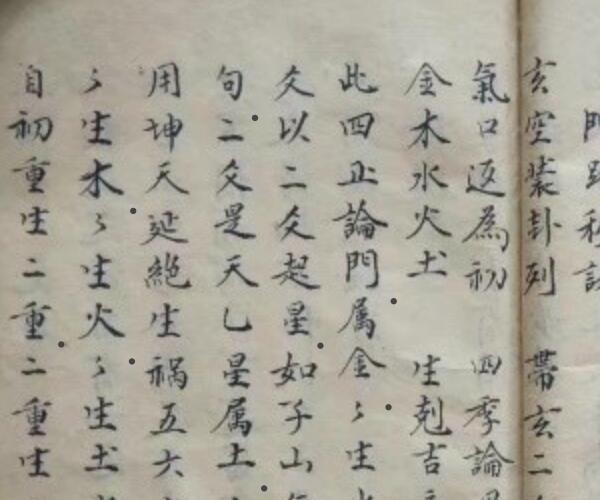 門
玄空裝卦列 帶玄二
氣口返為初 四季論
金木水火土 生剋吉
此四正論門属金〻生
爻以二爻起星如子山
句二爻是天乙星属土
用坤天延絶生禍五六
〻生木〻生火〻生土
自初重生二重二重生